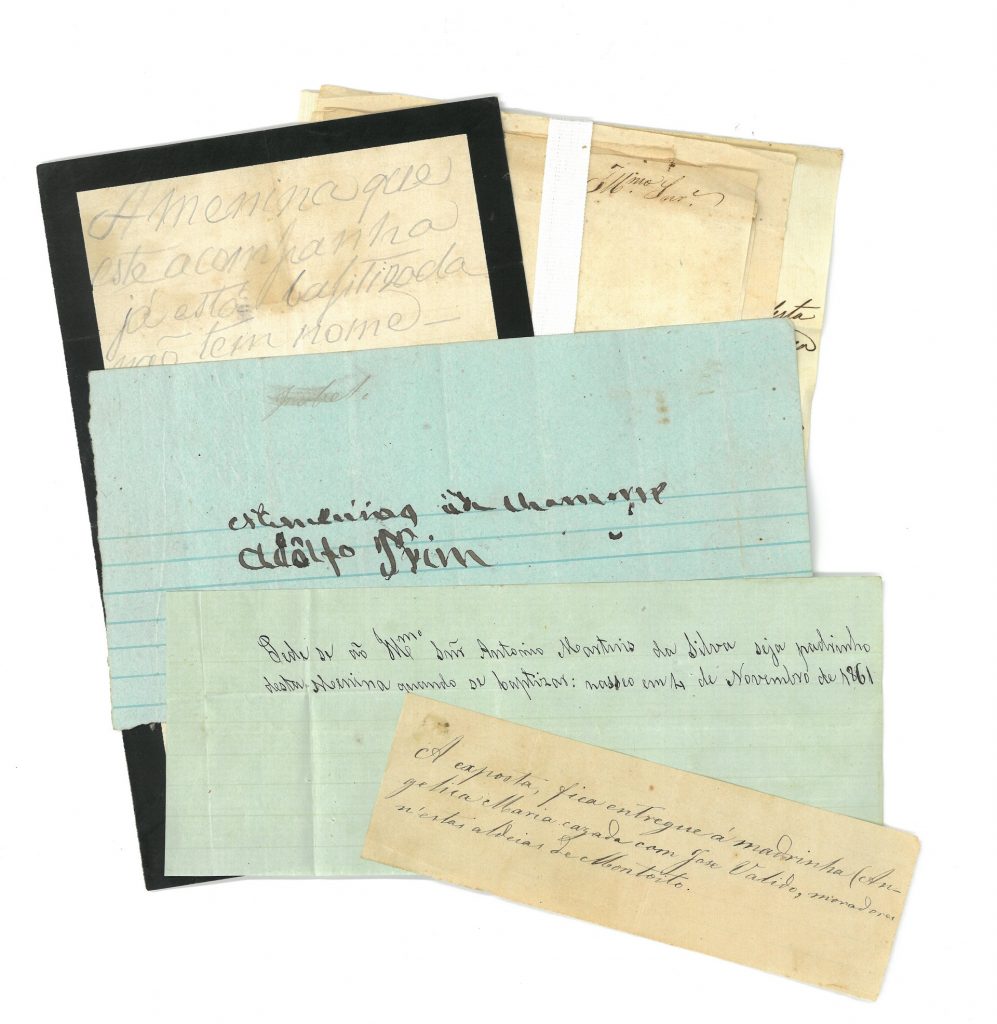 A menina que
este acompanha
já está baptizada
não tem nome —
Illmo Snr.
desta
este menino
Adôlfo Prim
Pede se ao Illmo Snr Antonio Martins da Silva seja padrinho
desta Menina quando se baptizar: nasseo em 4 de Novembro de 1861
A exposta, fica entregue á madrinha (An-
gelica Maria cazada com Jose Valido, moradores
n'estas aldeias de Montoito.